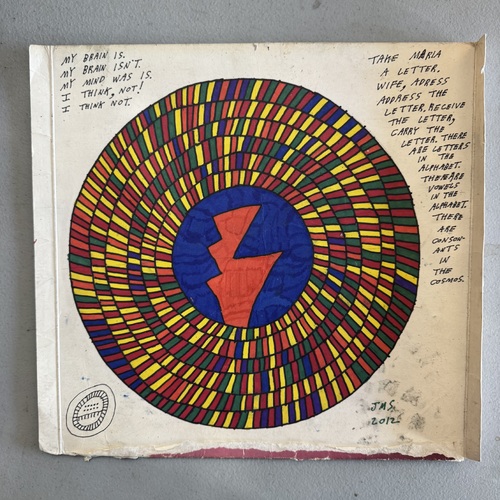 MY BRAIN IS.
MY BRAIN ISN'T.
MY MIND WAS IS.
I THINK, NOT!
I THINK NOT.
TAKE MARIA
A LETTER.
WIFE, ADRESS
ADDRESS THE
LETTER, RECEIVE
THE LETTER,
CARRY THE
LETTER. THERE
ARE LETTERS
IN THE
ALPHABET.
THERE ARE
VOWELS
IN THE
ALPHABET.
THERE
ARE
CONSON-
ANTS
IN
THE
COSMOS.
JMS.
2012